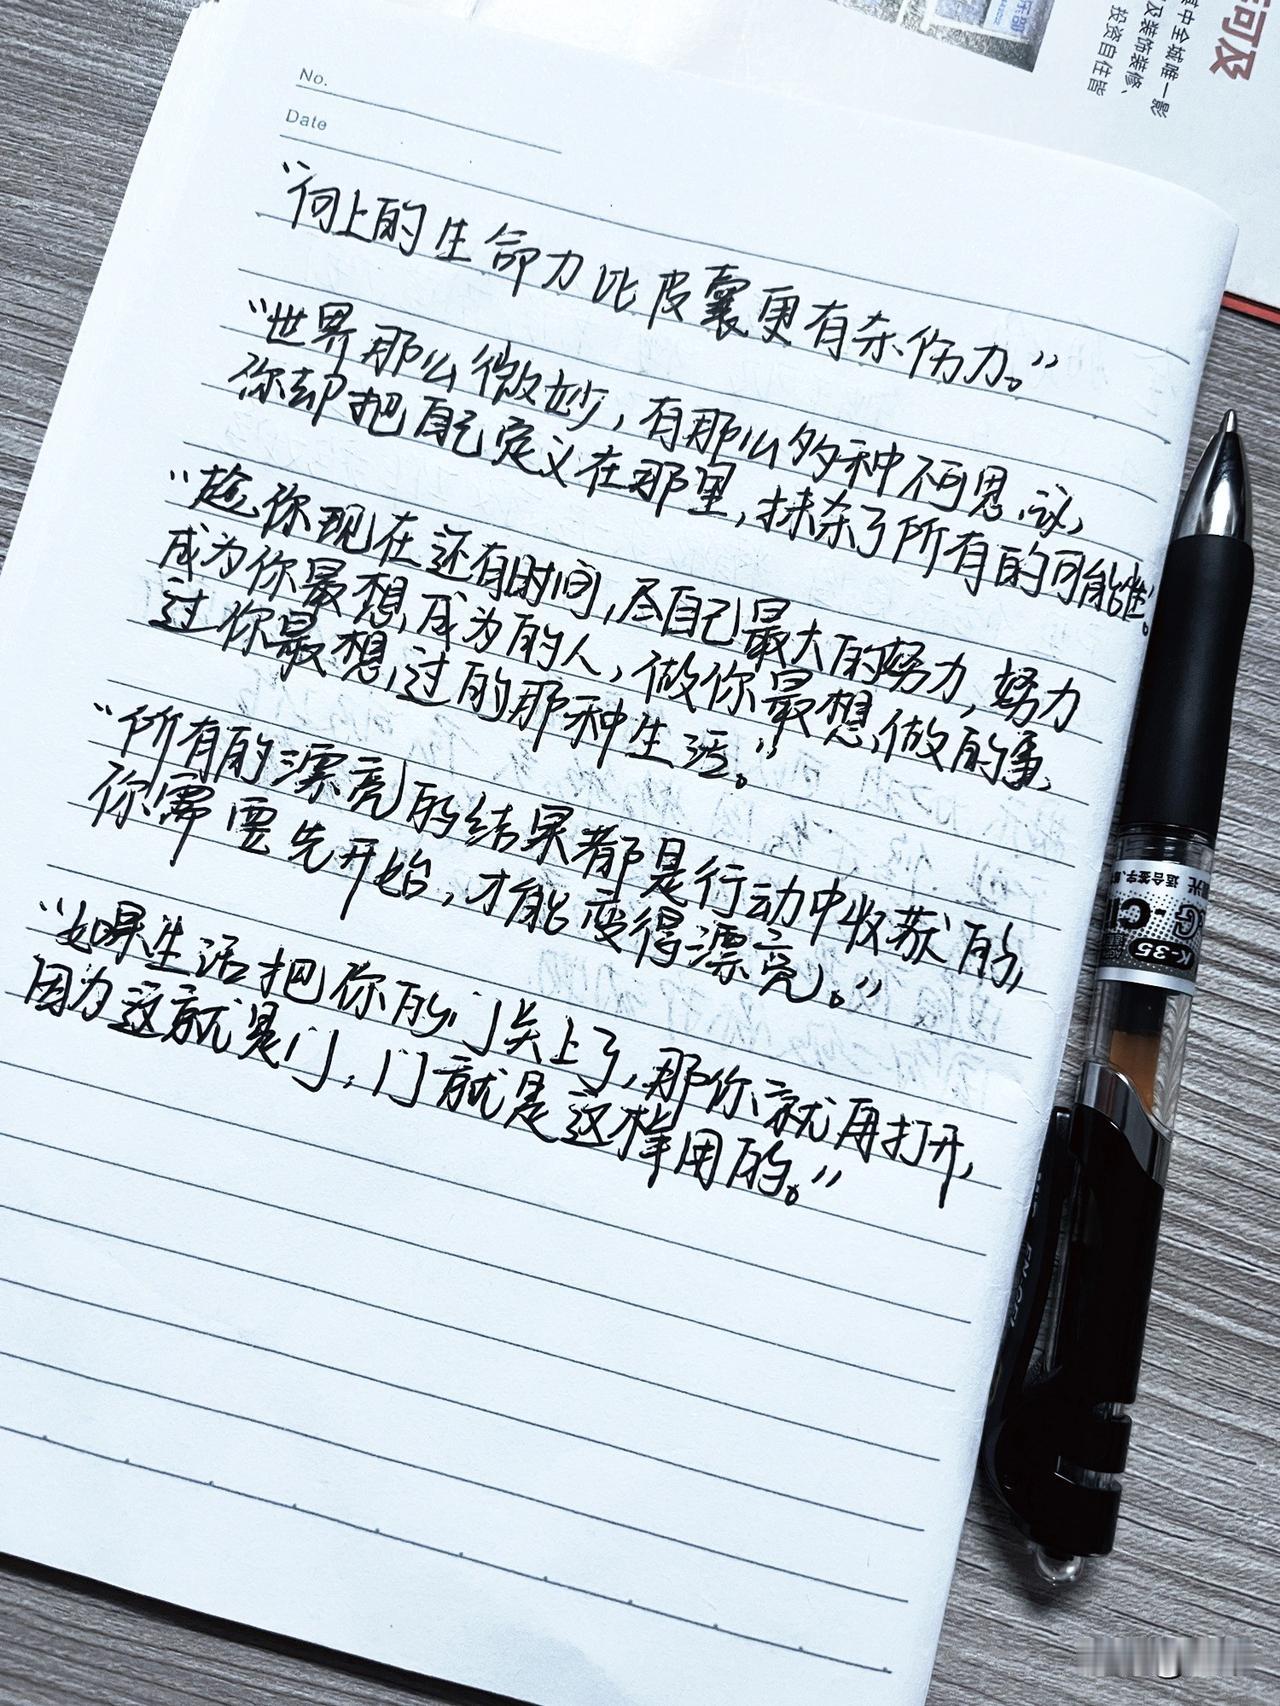 No.
Date
“向上的生命力比皮囊更有杀伤力。”
“世界那么微妙，有那么多种不可思议，
你却把自己定义在那里，抹杀了所有的可能性。
“趁你现在还有时间，尽自己最大的努力，努力
成为你最想成为的人，做你最想做的事，
过你最想过的那种生活。”
“所有的漂亮的结果都是行动中收获的，
你需要先开始，才能变得漂亮。”
“如果生活把你的门关上了，那你就再打开，
因为这就是门，门就是这样用的。”
可及
中全城唯一影
及装饰装修、
投资自住皆
K-35